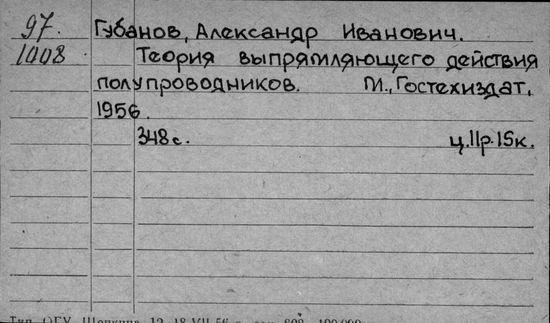 97. Губанов, Александр Иванович.
1008. Теория выпрямляющего действия
полупроводников. М., Гостехиздат,
1956.
348 с. ц. 11р. 15к.
Тип. ОГУ, Щепкина, 12 18.VII-56 г.